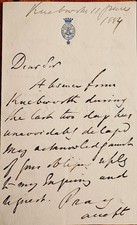 Knebworth
1889
Dear Sir
Absence from
Knebworth during
the last two days has
unavoidably delayed
my acknowledgment
of your obliging reply
to my enquiry and
request. Pray
accept